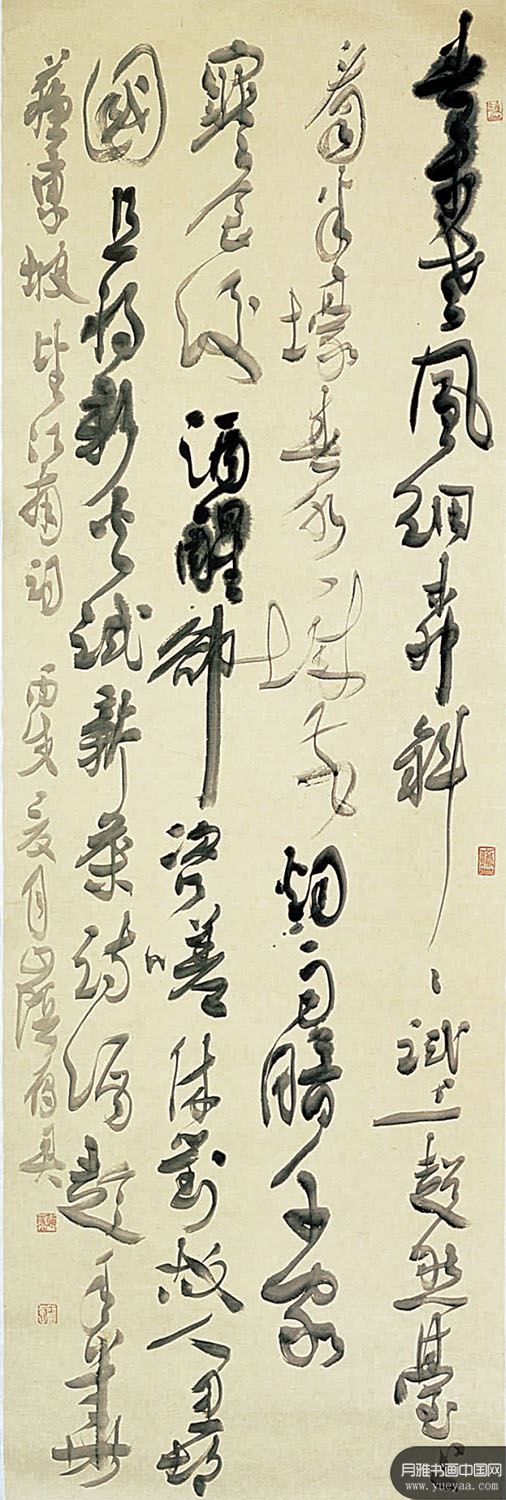 春未老風細柳斜〻試上超然臺上
看半壕春水一城花烟雨暗千家
寒食後酒醒卻咨嗟休對故人思故
國且將新火試新茶詩酒趁年華
蘇東坡望江南詞 丙戌夏月山陰
月雅书画中国网
www.yueyaa.com